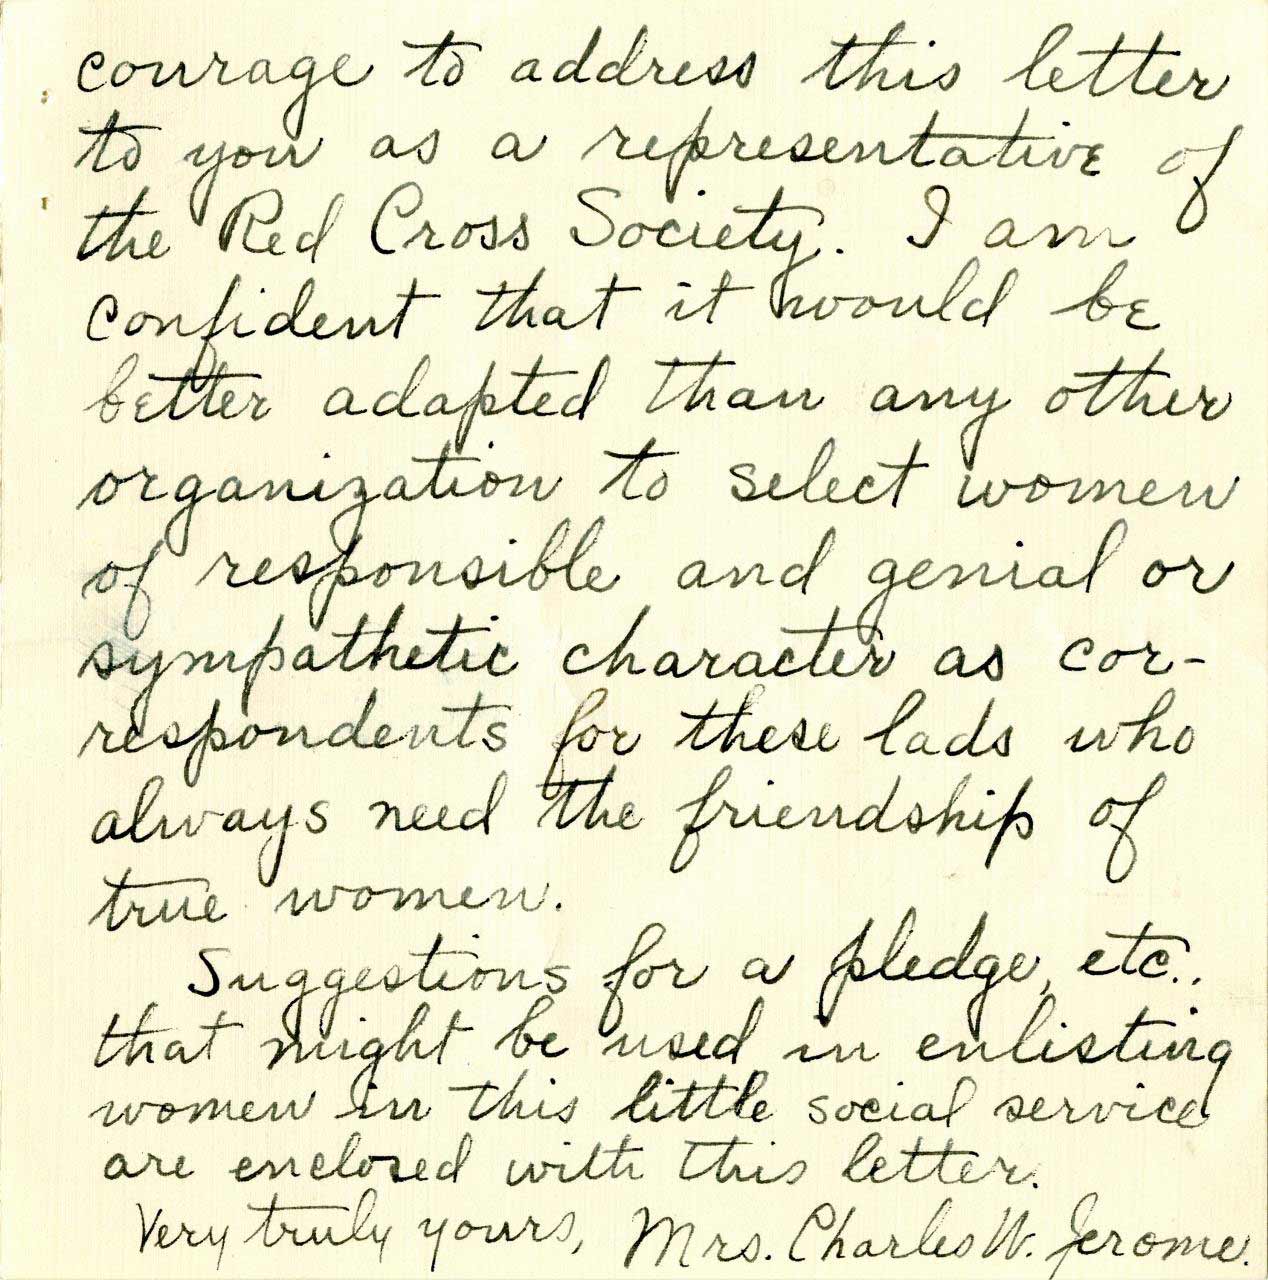 courage to address this letter
to you as a representative of
the Red Cross Society. I am
confident that it would be
better adapted than any other
organization to select women
of responsible and genial or
sympathetic character as cor-
respondents for these lads who
always need the friendship of
true women.
Suggestions for a pledge, etc.,
that might be used in enlisting
women in this little social service
are enclosed with this letter.
Very truly yours, Mrs. Charles W. Jerome.